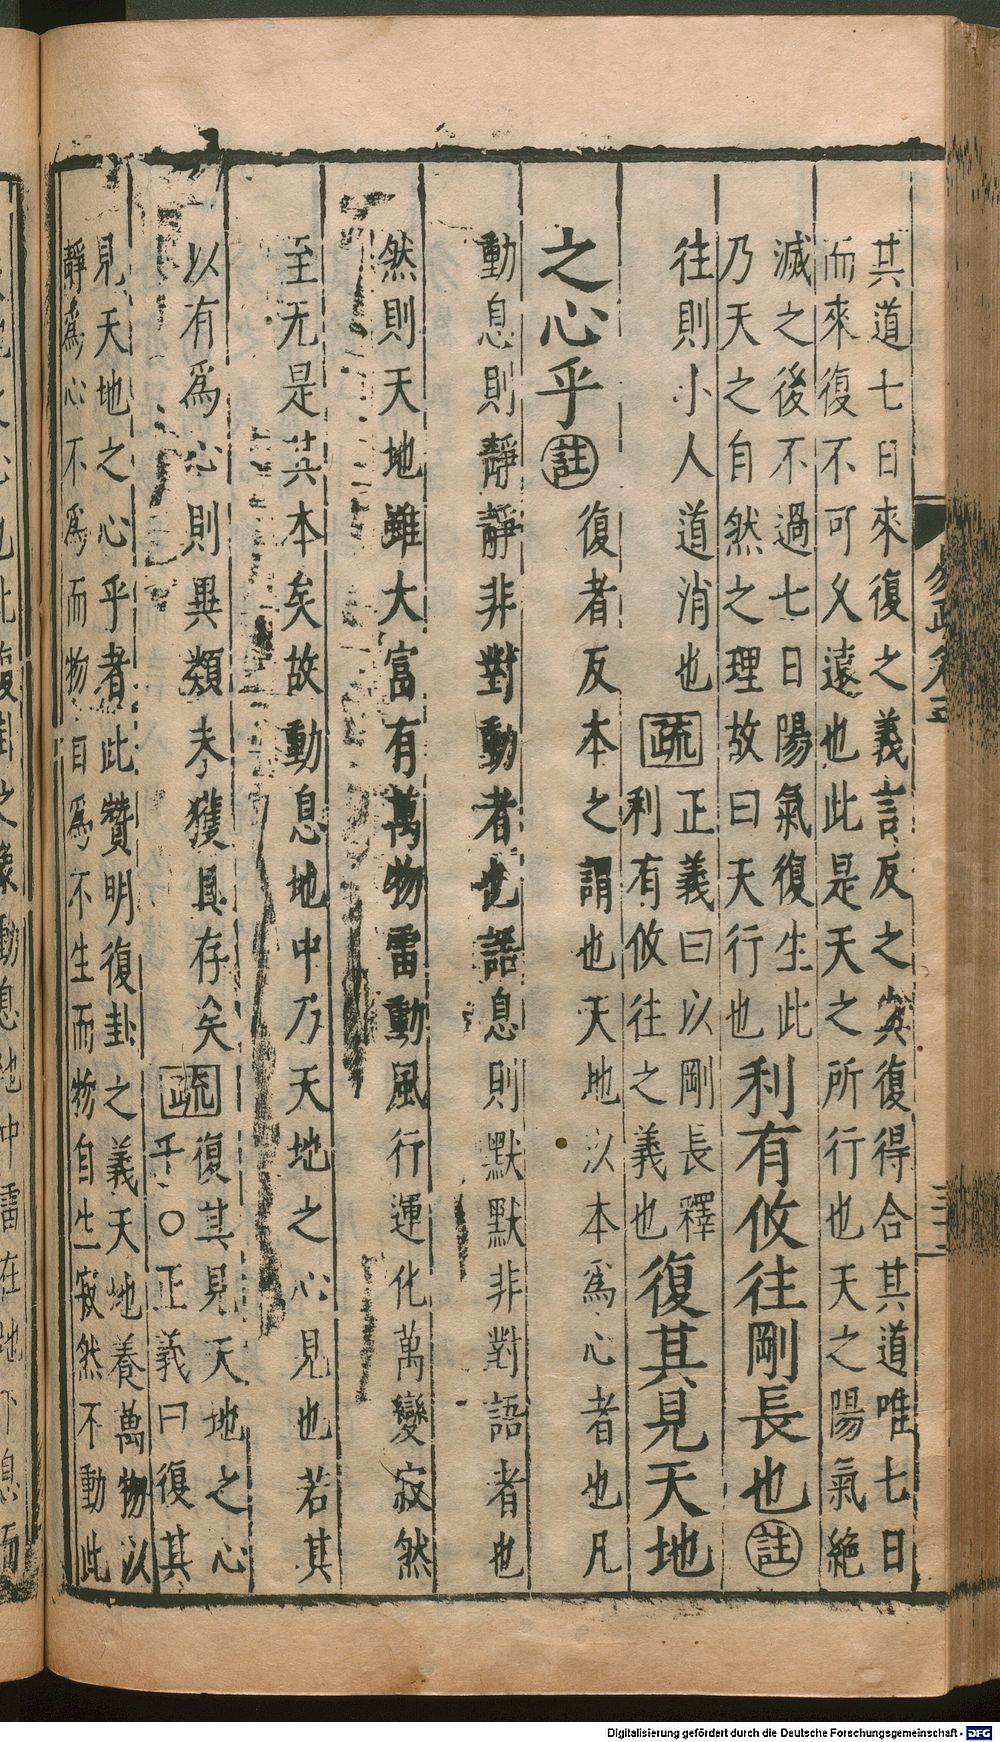 其道七日來復之義言反之與復得合其道唯七日
而來復不可久遠也此是天之所行也天之陽氣絶
滅之後不過七日陽氣復生此
乃天之自然之理故曰天行也利有攸往剛長也註
往則小人道消也疏正義曰以剛長釋
利有攸往之義也復其見天地
之心乎註復者反本之謂也天地以本爲心者也凡
動息則靜靜非對動者也語息則默默非對語者也
然則天地雖大富有萬物雷動風行運化萬變寂然
至无是其本矣故動息地中乃天地之心見也若其
以有爲心則異類未獲具存矣疏復其見天地之心
乎○正義曰復其
見天地之心乎者此贊明復卦之義天地養萬物以
靜爲心不爲而物自爲不生而物自生寂然不動此
動息地中雷在地下息而
Digitalisierung gefördert durch die Deutsche Forschungsgemeinschaft - DFG